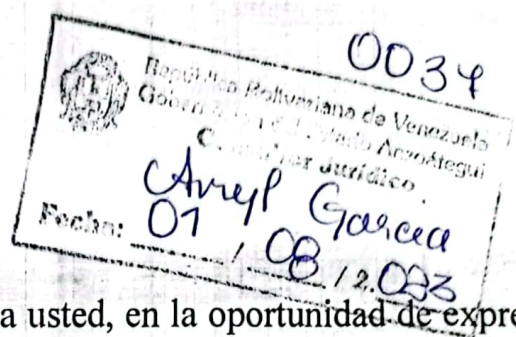 0034
República Bolivariana de Venezuela
Gobernación del Estado Anzoátegui
Jurídico
García
Fecha: 01 / 08 / 2.023
a usted, en la oportunidad de expre